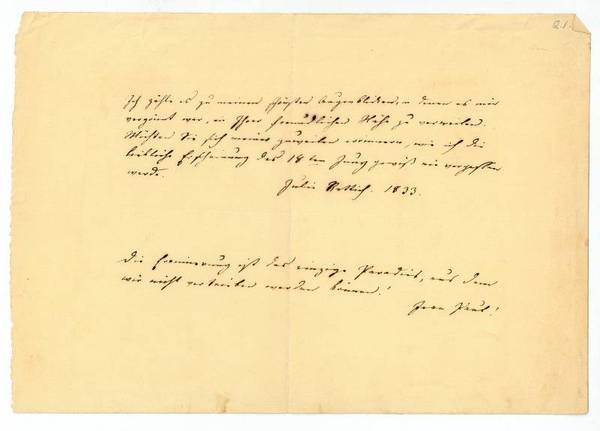 21.
Ich zähle es zu meinen schönsten Augenblicken, in denen es mir
vergönnt war, in Ihrer freundlichen Nähe zu verweilen.
Möchten Sie sich meiner zuweilen erinnern, wie ich die
liebliche Erscheinung des 18ten Juny gewiß nie vergessen
werde.
Julie Rettich. 1833.
Die Erinnerung ist das einzige Paradies, aus dem
wir nicht vertrieben werden können!
Jean Paul!